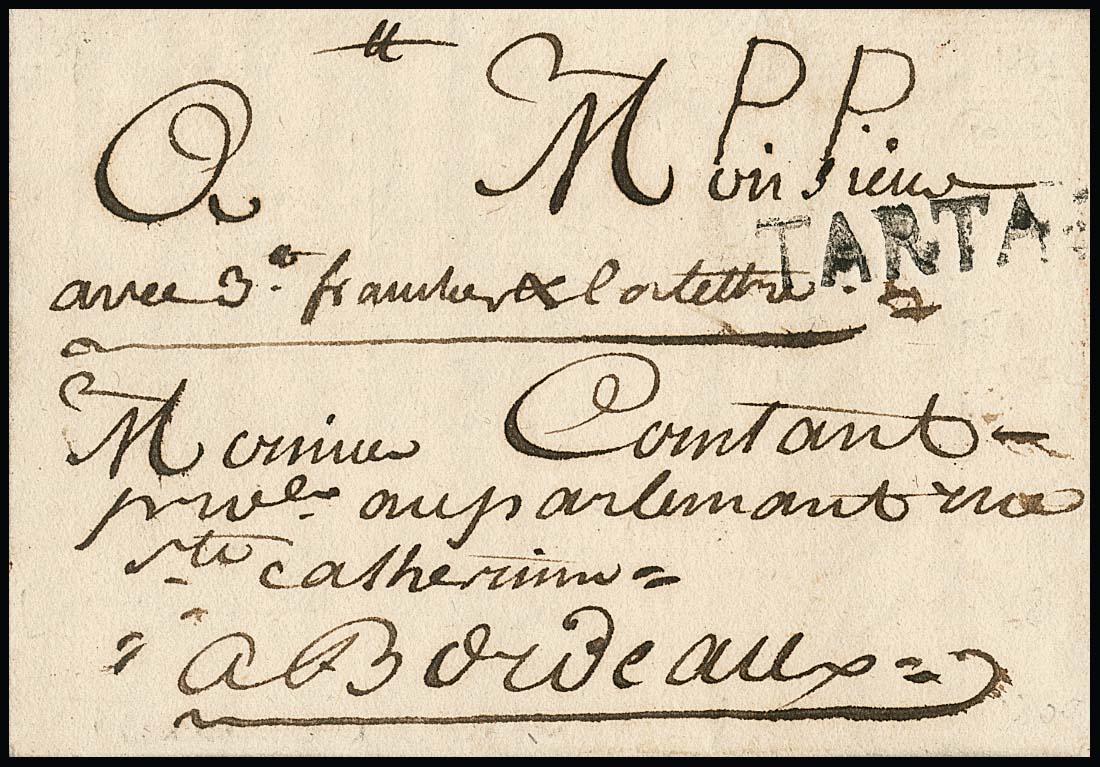 PP
A Monsieur
TARTA
avec 3.# franches & la lettre
Monsieur Constant
au parlemant rue
ste catherinne =
= a Bordeaux =